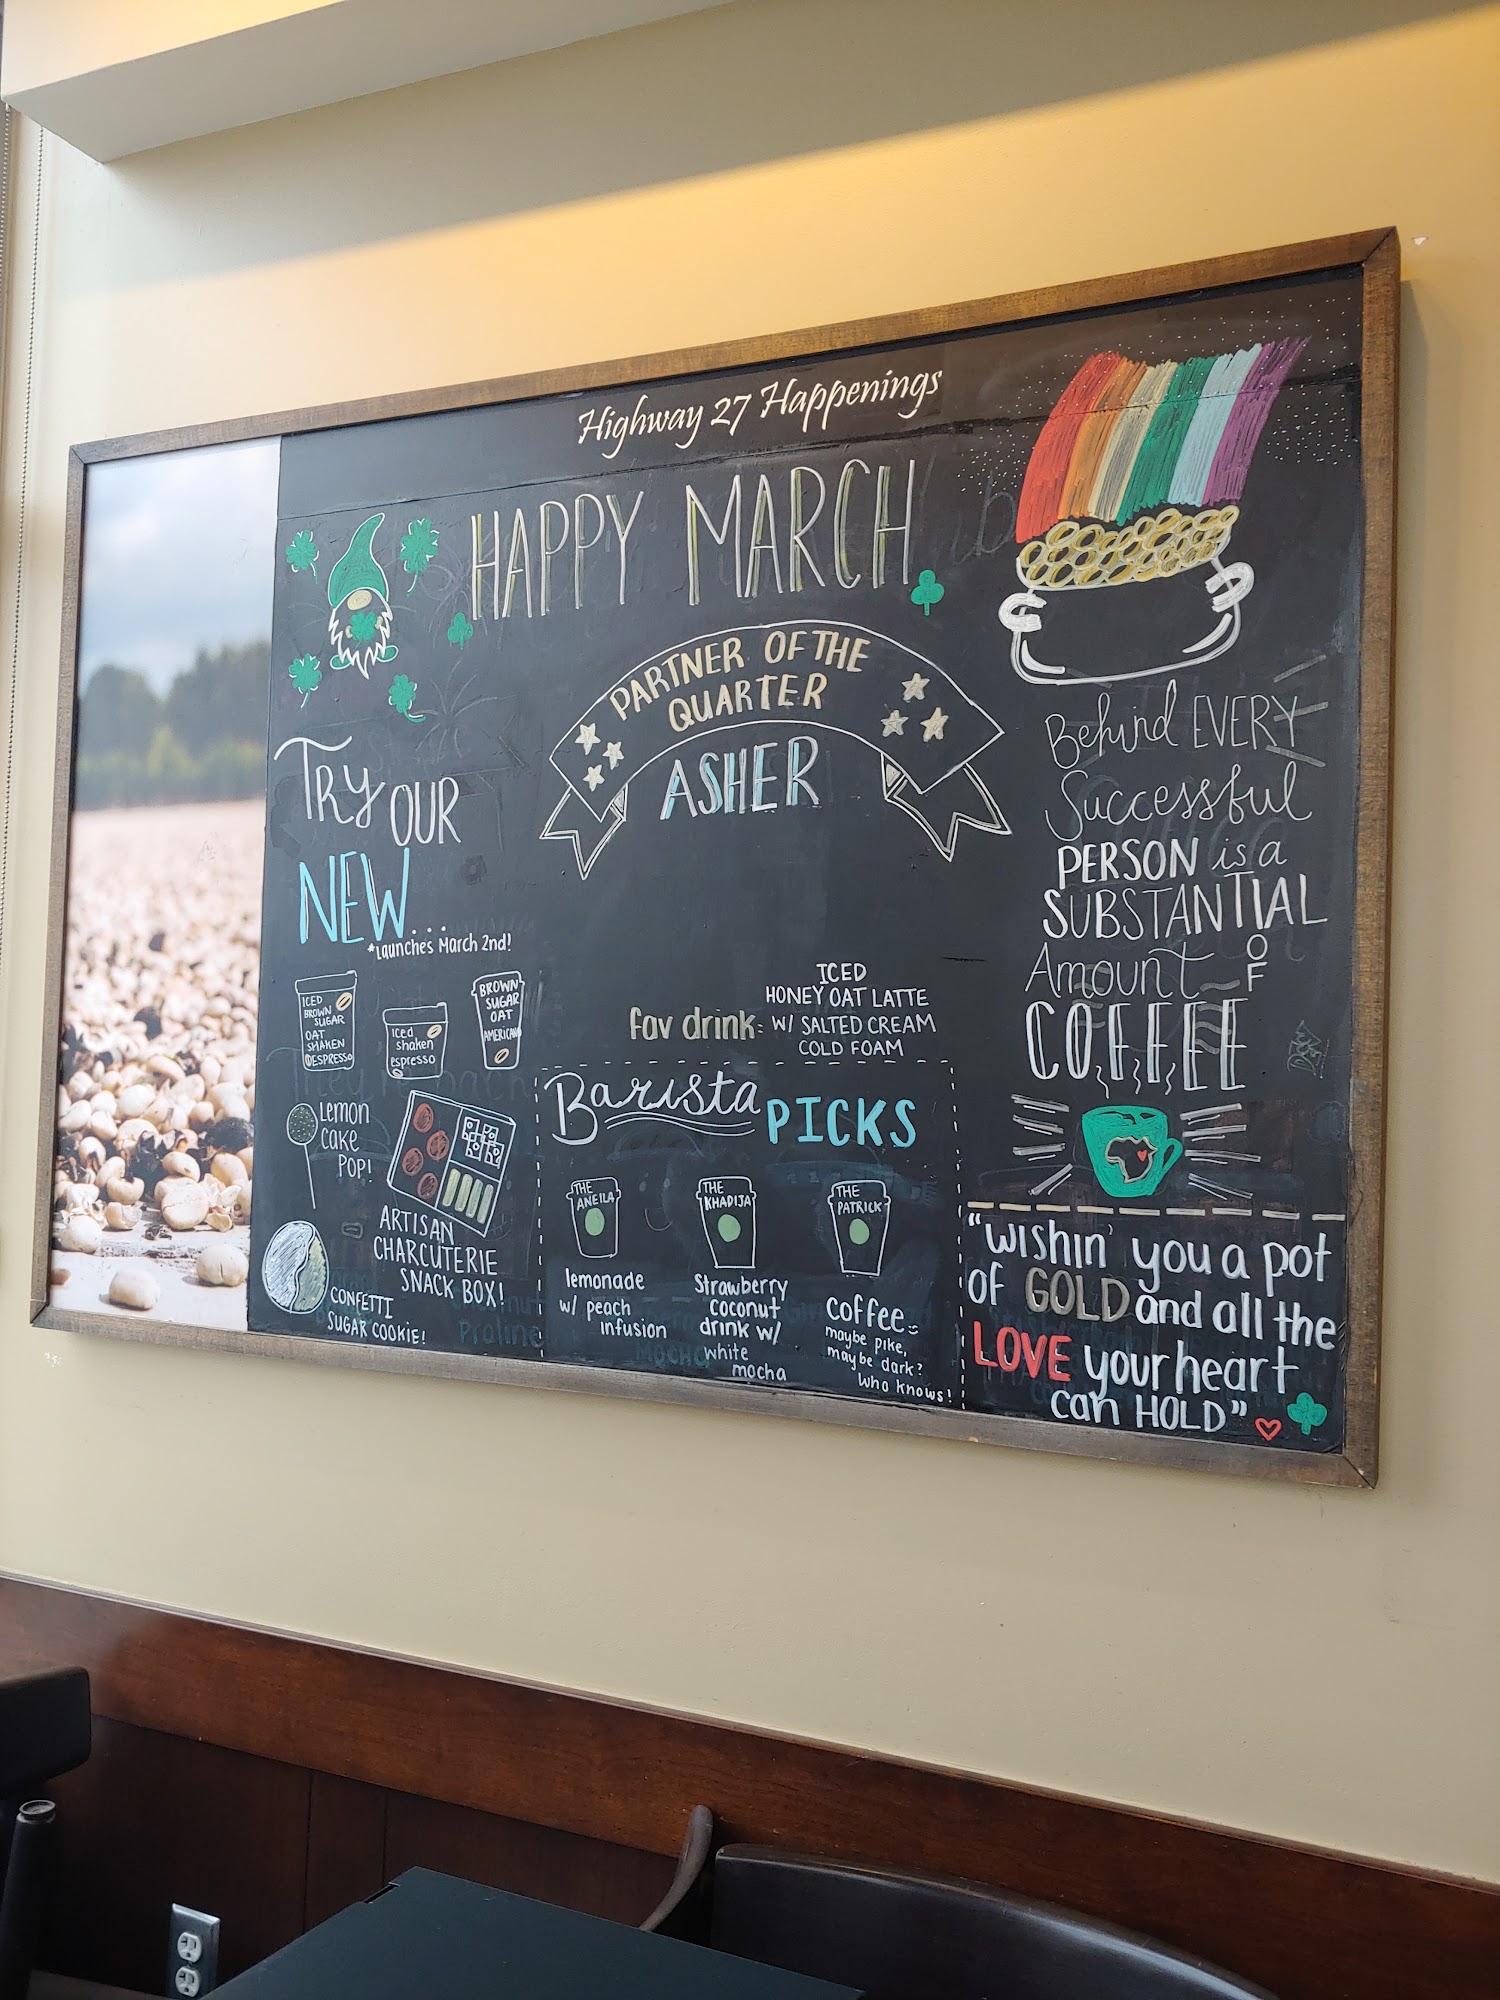 Highway 27 Happenings
HAPPY MARCH
PARTNER OF THE
QUARTER
ASHER
fav drink:
ICED
HONEY OAT LATTE
W/ SALTED CREAM
COLD FOAM
TRY OUR
NEW...
*Launches March 2nd!
ICED
BROWN
SUGAR
OAT
SHAKEN
ESPRESSO
iced
shaken
espresso
BROWN
SUGAR
OAT
AMERICANO
LEMON
CAKE
POP!
ARTISAN
CHARCUTERIE
SNACK BOX!
CONFETTI
SUGAR COOKIE!
Barista PICKS
THE
ANEILA
lemonade
w/ peach
infusion
THE
KHADIJA
Strawberry
coconut
drink w/
white
mocha
THE
PATRICK
coffee
maybe pike,
maybe dark?
who knows!
Behind EVERY
Successful
PERSON is a
SUBSTANTIAL
Amount OF
COFFEE
"wishin' you a pot
of GOLD and all the
LOVE your heart
can HOLD"